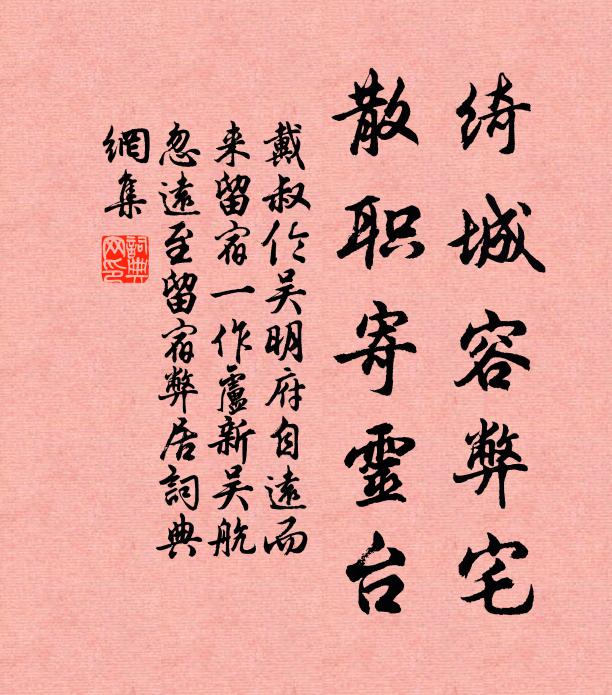 绮城容弊宅
散职寄靈台
戴叔伦吴明府自遠而
来留宿一作盧新吴航
忽遠至留宿弊居詞典
網集
詞典
网印